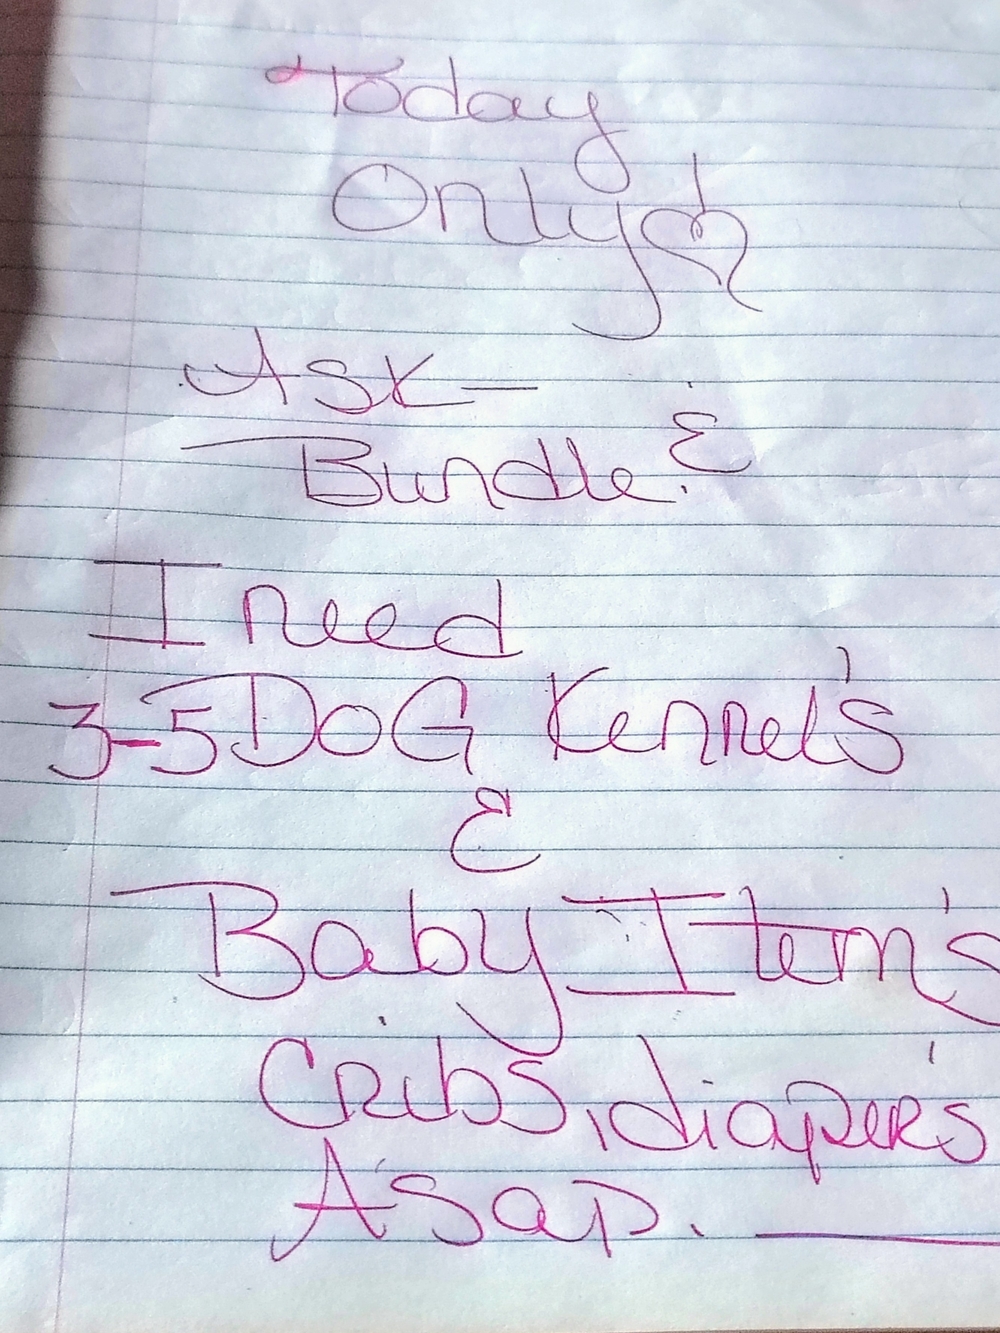 Today
Only
ASK -
Bundle &
I need
3-5 DOG Kennel's
&
Baby Item's
Cribs, diaper's
A'Sap.